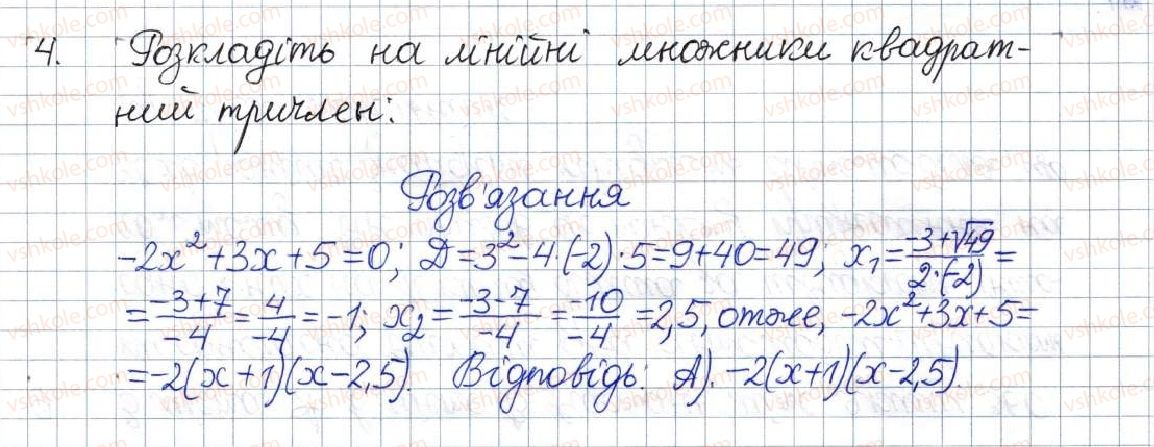 4. Розкладіть на лінійні множники квадрат-
ний тричлен:
Розв'язання
-2x²+3x+5=0; D=3²-4·(-2)·5=9+40=49; x₁=(-3+√49)/(2·(-2))=
=(-3+7)/(-4)=4/(-4)=-1; x₂=(-3-7)/(-4)=(-10)/(-4)=2,5, отже, -2x²+3x+5=
=-2(x+1)(x-2,5). Відповідь: А). -2(x+1)(x-2,5).